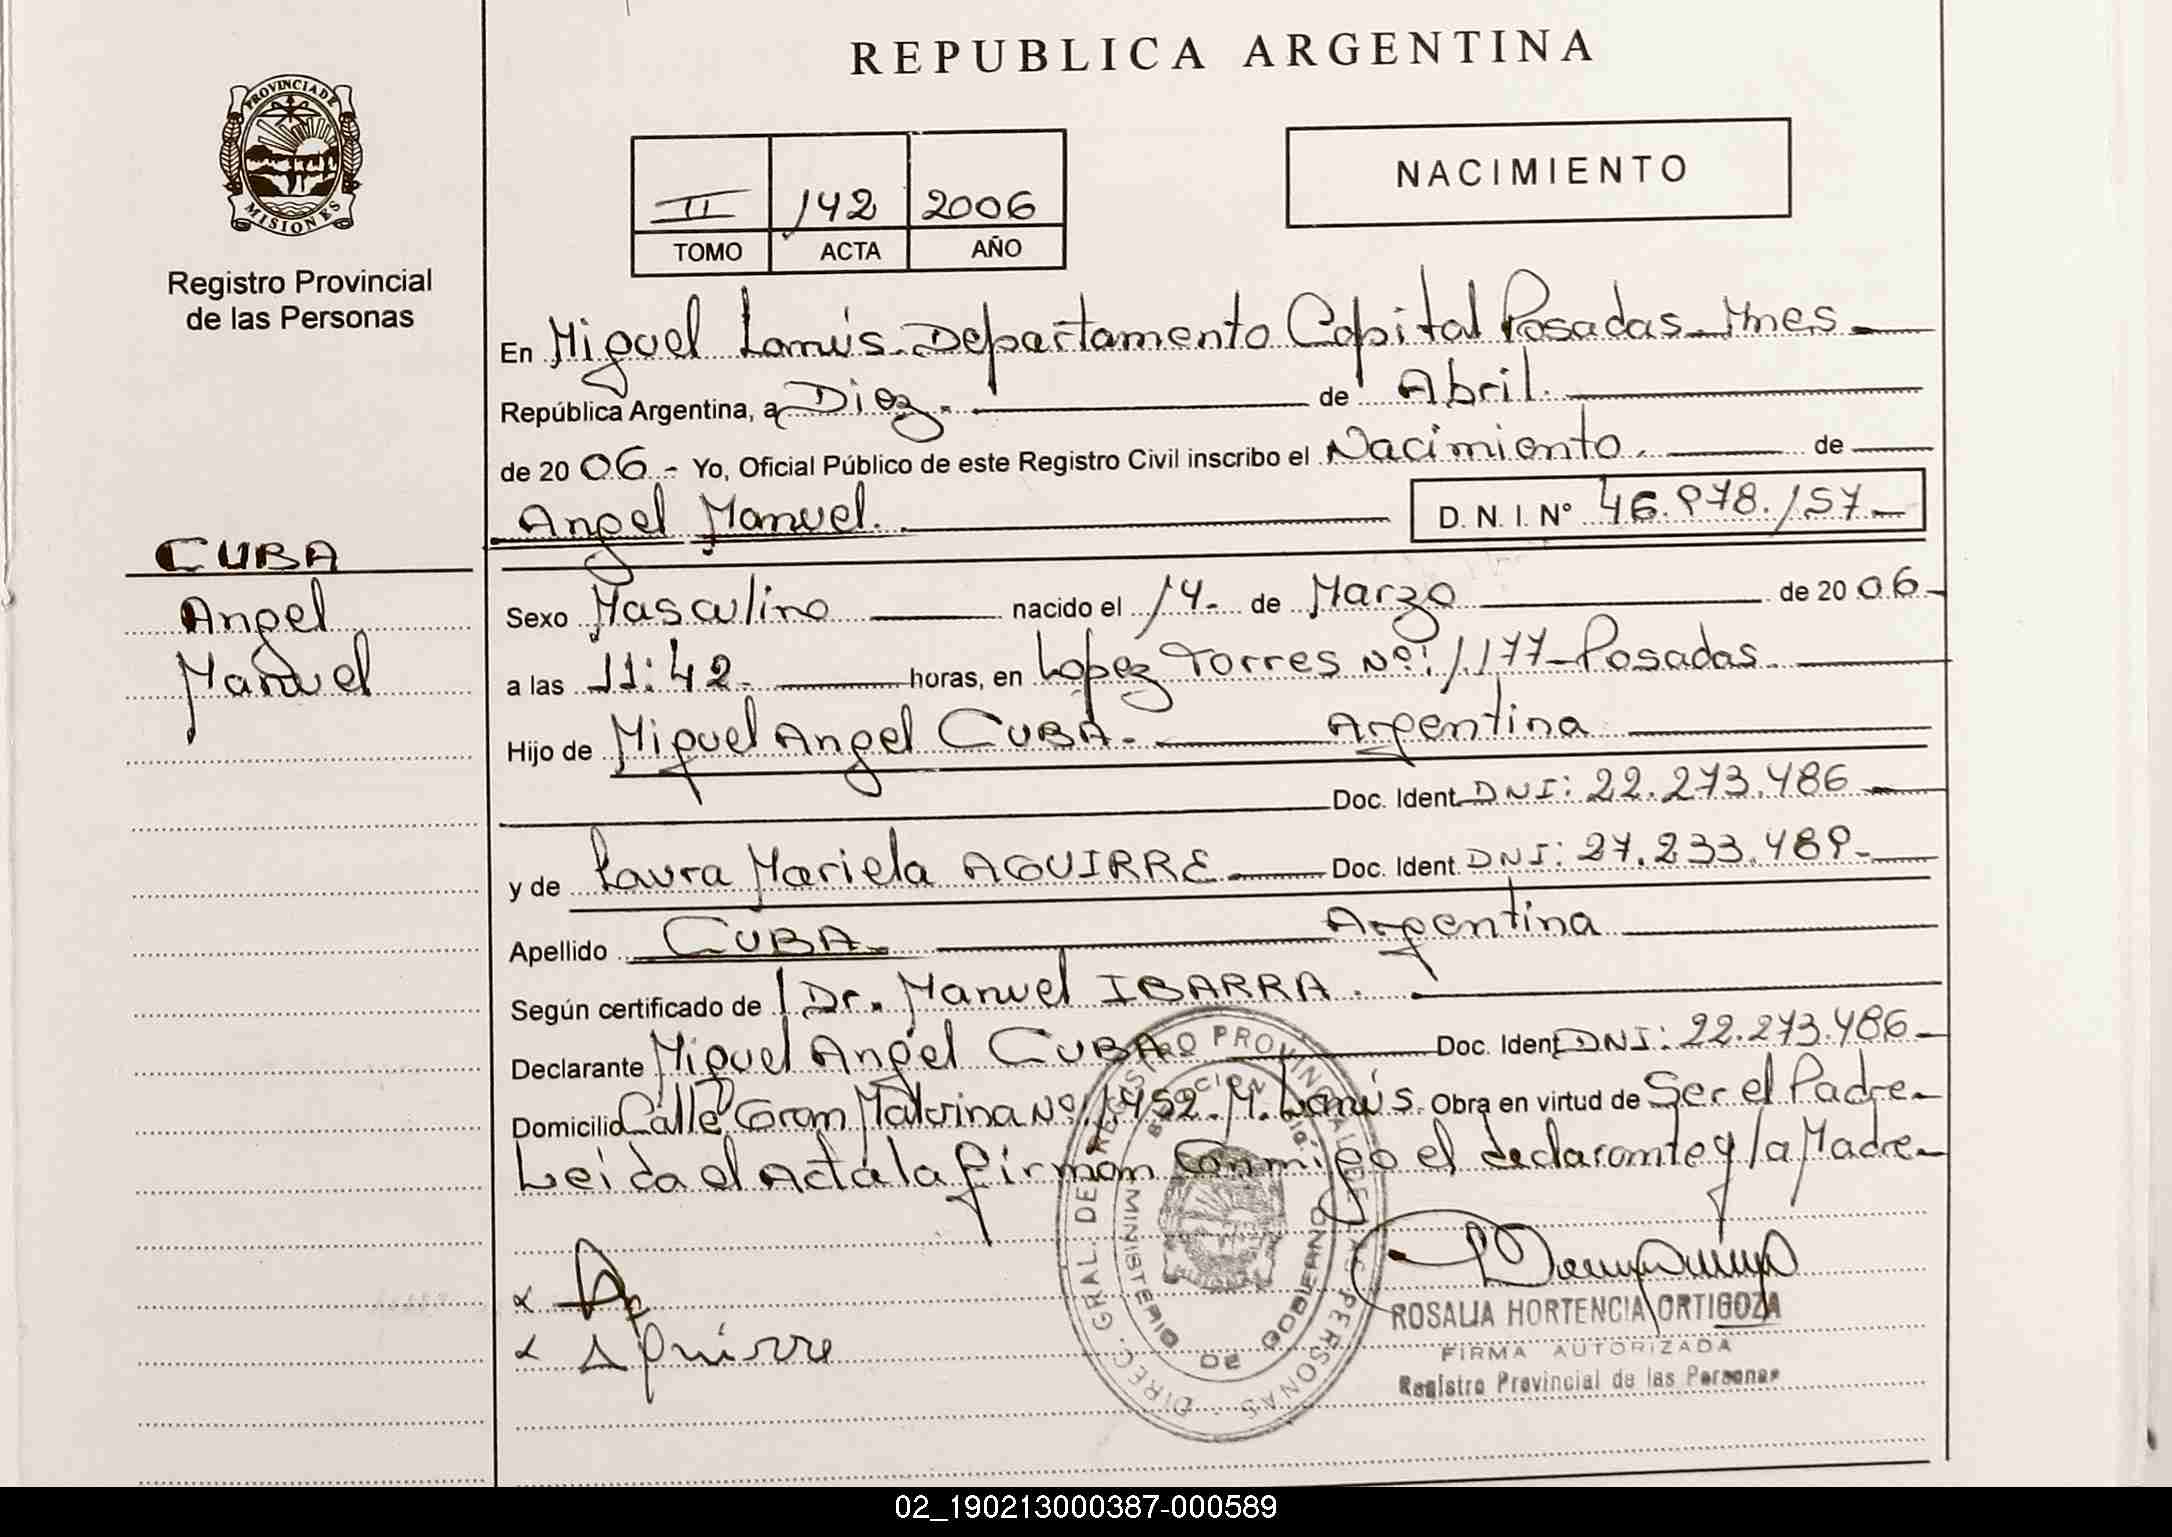 REPUBLICA ARGENTINA
PROVINCIA DE
MISIONES
Registro Provincial
de las Personas
II 142 2006
TOMO ACTA AÑO
NACIMIENTO
En Miguel Lanús. Departamento Capital Posadas Mnes
República Argentina, a Diez. de Abril.
de 20 06.- Yo, Oficial Público de este Registro Civil inscribo el Nacimiento. de
Angel Manuel. D. N. I. Nº 46.978.157
CUBA
Angel
Manuel
Sexo Masculino nacido el 14. de Marzo de 20 06
a las 11:42. horas, en Lopez Torres Nº: 1177 Posadas
Hijo de Miguel Angel CUBA. Argentina
Doc. Ident. DNI: 22.273.486
y de Laura Mariela AGUIRRE Doc. Ident. DNI: 27.233.489
Apellido CUBA Argentina
Según certificado de Dr. Manuel IBARRA.
Declarante Miguel Angel CUBA Doc. Ident. DNI: 22.273.486
Domicilio Calle Gran Malvina Nº 1452. M. Lanús. Obra en virtud de Ser el Padre
Leida el Acta la firman conmigo el declarante y la Madre
Aguirre
DIREC. GRAL. DE REGISTRO PROVINCIAL DE LAS PERSONAS
MINISTERIO DE GOBIERNO
ROSALIA HORTENCIA ORTIGOZA
FIRMA AUTORIZADA
Registro Provincial de las Personas
02_190213000387-000589